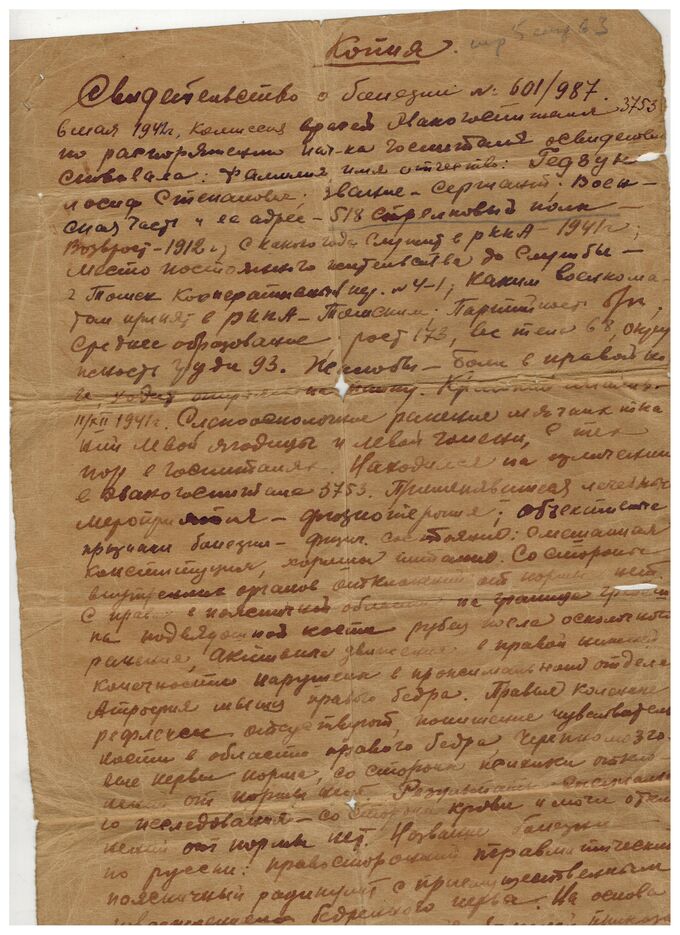 Копия. стр 5 63
Свидетельство о болезни №: 601/987.
6 мая 1942г, комиссия врачей Эвакогоспиталя 3753
по распоряжению нач-ка госпиталя освидетель
ствовала: Фамилия имя отчество: Гедзун
Иосиф Степанович; звание – сержант; Воен –
ская часть и ее адрес – 518 стрелковый полк –
Возврост – 1912 г; с какого года служит в РККА – 1941г;
место постоянного жительства до службы –
г Томск Кооперативный пер. №4-1; каким военкома-
том принят в РККА – Томским. Партийность б/п,
среднее образование рост 173, вес тела 68, окру
жность груди 93. Жалобы – боли в правой но
ге, ходит
11/XII 1941г. Слепоосколочное ранение мягких тка
ней левой ягодицы и левой голени, с тех
пор в госпиталях. Находился на излечении
в эвакогоспитале 3753. Применявшиеся лечебные
мероприятия – физиотерапия; объективные
признаки болезни – физич. состояние: смешанная
конституция, хорошее питание. Со стороны
внутренних органов отклонений от нормы нет.
С права в поясничной области на границе гребня
на подвздошной кости рубец после осколочного
ранения, активные движения в правой нижней
конечности нарушен в проксимального отдела
Атрофия мышц правого бедра. Правые коленные
рефлексы отсутствуют, понижение чувствитель
ности в области правого бедра, черепномозго
вые нервы норма, со стороны психики откло
нений от нормы нет. Результаты
го исследования – со стороны крови и мочи откло
нений от нормы нет. Название болезни
по русски: правосторонний травматический
поясничный радикулит с преимущественным
бедренного нерва. На основа
приказа